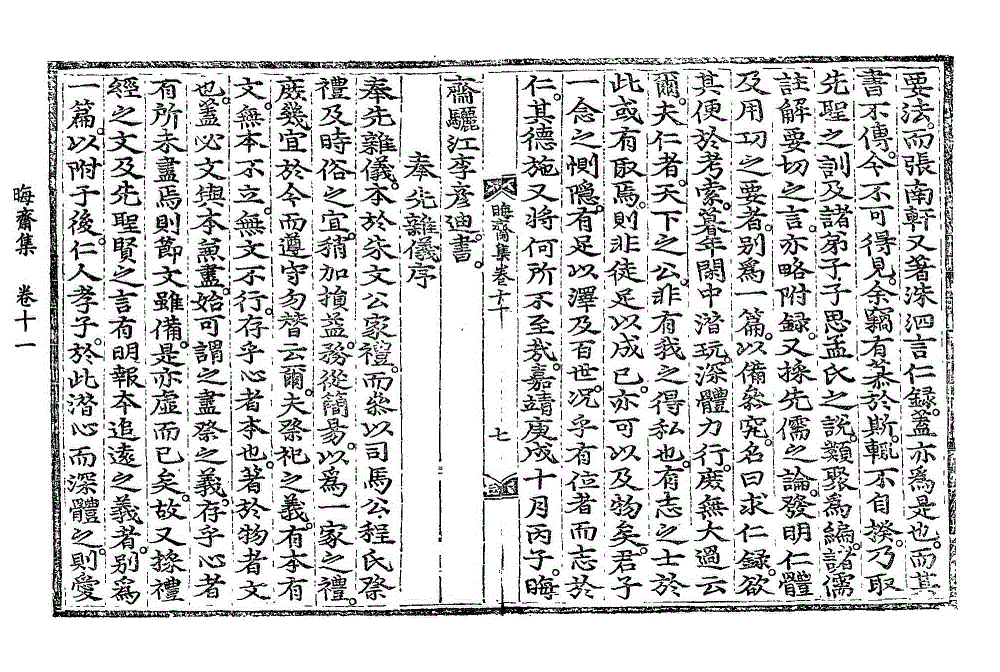 要法。而張南軒又著洙泗言仁錄。蓋亦爲是也。而其
書不傳。今不可得見。余竊有慕於斯。輒不自揆。乃取
先聖之訓及諸弟子子思孟氏之說。類聚爲編。諸儒
註解要切之言。亦略附錄。又採先儒之論。發明仁體
及用功之要者。別爲一篇。以備叅究。名曰求仁錄。欲
其便於考索。暮年閑中潛玩。深體力行。庶無大過云
爾。夫仁者。天下之公。非有我之得私也。有志之士於
此或有取焉。則非徒足以成己。亦可以及物矣。君子
一念之惻隱。有足以澤及百世。況乎有位者而志於
仁。其德施又將何所不至哉。嘉靖庚戌十月丙子。晦
晦齋集卷十一
七
齋驪江李彦迪書。
奉先雜儀序
奉先雜儀。本於朱文公家禮。而叅以司馬公程氏祭
禮及時俗之宜。稍加損益。務從簡易。以爲一家之禮。
庶幾宜於今而遵守勿替云爾。夫祭祀之義。有本有
文。無本不立。無文不行。存乎心者本也。著於物者文
也。蓋必文與本兼盡。始可謂之盡祭之義。存乎心者
有所未盡焉。則節文雖備。是亦虛而已矣。故又採禮
經之文及先聖賢之言有明報本追遠之義者。別爲
一篇。以附于後。仁人孝子。於此潛心而深體之。則愛
晦齋集 卷十一